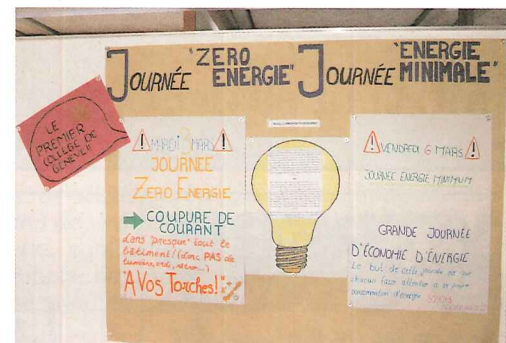 JOURNÉE "ZERO ENERGIE"
JOURNÉE "ENERGIE MINIMALE"
LE PREMIER COLLEGE DE GENEVE!!
MARDI 3 MARS
JOURNEE
ZERO ENERGIE
COUPURE DE
COURANT
dans "presque" tout le
bâtiment! (donc PAS de
lumière,
"A Vos Torches!"
VENDREDI 6 MARS
JOURNEE ENERGIE MINIMUM
GRANDE JOURNÉE
D'ÉCONOMIE D'ÉNERGIE
Le but de cette journée est que
chacun fasse attention à sa propre
consommation d'énergie